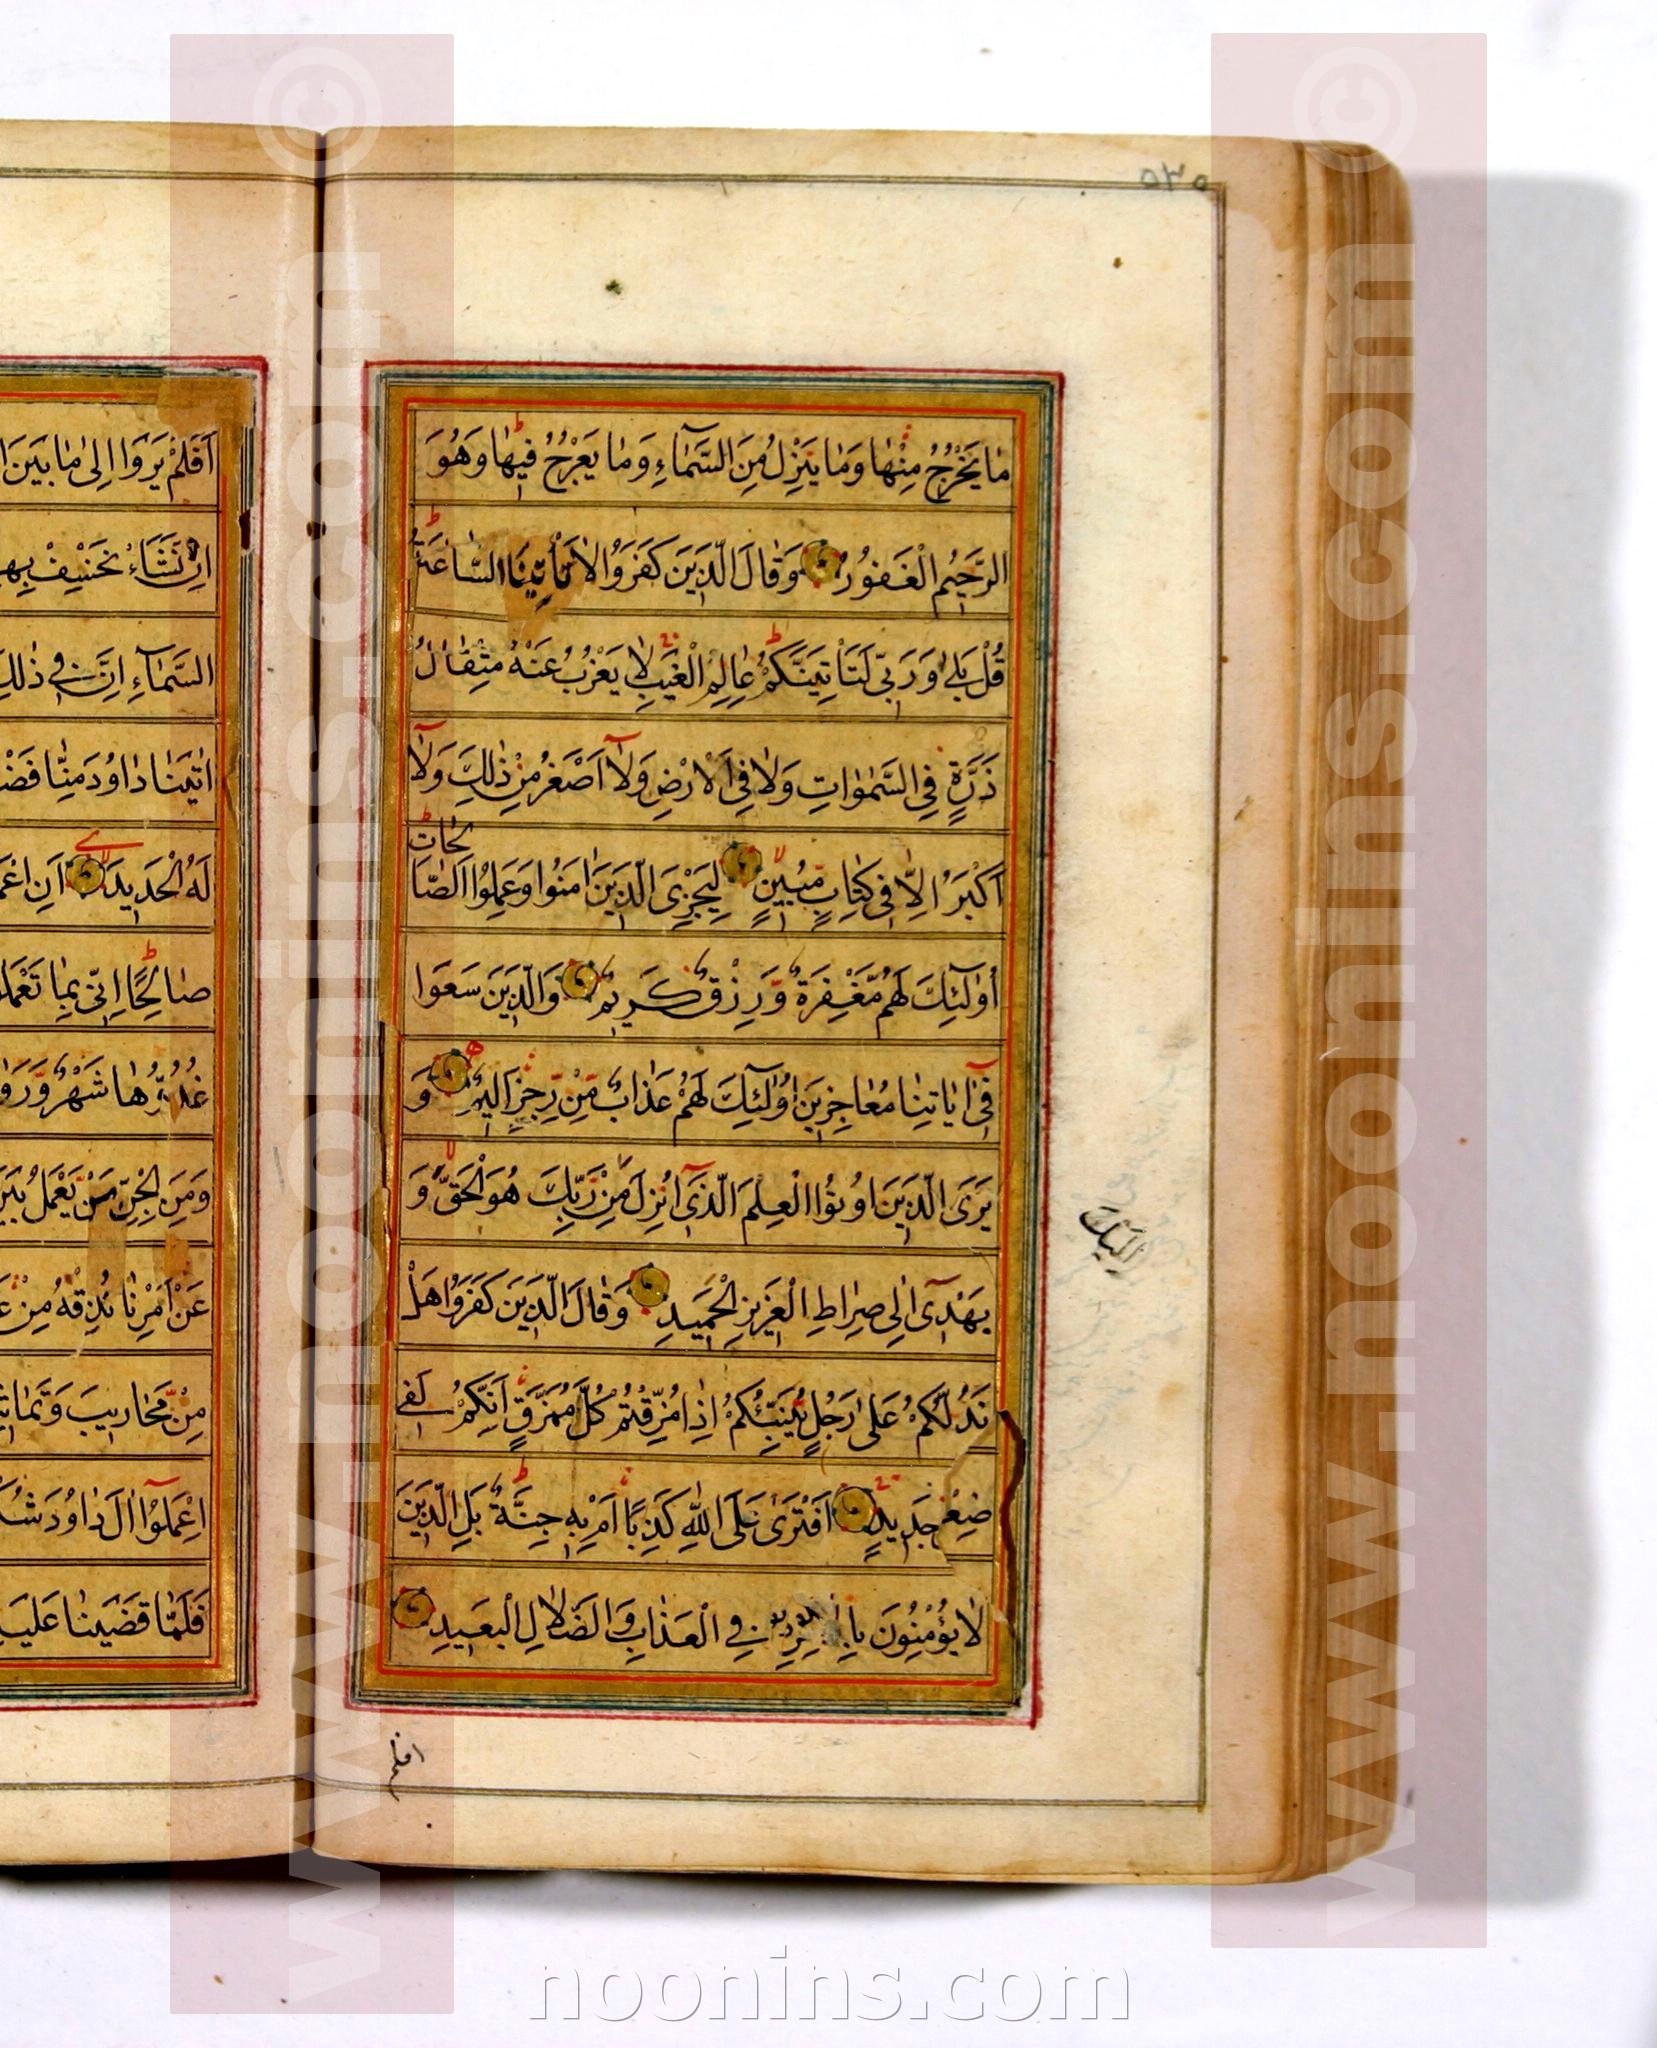 ۵۳۵
مٰا يَخْرُجُ مِنْهٰا وَمٰا يَنْزِلُ مِنَ السَّمٰآءِ وَمٰا يَعْرُجُ فيٖهٰا وَهُوَ
الرَّحيٖمُ الْغَفوُرُ وَقٰالَ الَّذيٖنَ كَفَرَوُا لٰا تَأْتيٖنَا السّٰاعَةُ
قُلْ بَلىٰ وَرَبّيٖ لَتَأْتِيَنَّكُمْ عٰالِمِ الْغَيْبِ لٰا يَعْزُبُ عَنْهُ مِثْقٰالُ
ذَرَّةٍ فِي السَّمٰوٰاتِ وَلٰا فِي الْاَرْضِ وَلٰآ اَصْغَرُ مِنْ ذٰلِكَ وَلٰآ
اَكْبَرُ اِلّٰا فيٖ كِتٰابٍ مُبيٖنٍ لِيَجْزِىَ الَّذيٖنَ اٰمَنُوا وَعَمِلُوا الصّٰا
لِحٰاتِ
اُولٰٓئِكَ لَهُمْ مَغْفِرَةٌ وَرِزْقٌ كَريٖمٌ وَالَّذيٖنَ سَعَوْا
فيٖٓ اٰيٰاتِنٰا مُعٰاجِزيٖنَ اُولٰٓئِكَ لَهُمْ عَذٰابٌ مِنْ رِجْزٍ اَليٖمٍ وَ
يَرَى الَّذيٖنَ اوُتوُا الْعِلْمَ الَّذيٖٓ اُنْزِلَ مِنْ رَبِّكَ هُوَ الْحَقَّ وَ
يَهْديٖٓ اِلىٰ صِرٰاطِ الْعَزيٖزِ الْحَميٖدِ وَقٰالَ الَّذيٖنَ كَفَرَوُا هَلْ
نَدُلُّكُمْ عَلىٰ رَجُلٍ يُنَبِّئُكُمْ اِذٰا مُزِّقْتُمْ كُلَّ مُمَزَّقٍ اِنَّكُمْ لَفيٖ
جَديٖدٍ اَفْتَرىٰ عَلَى اللّٰهِ كَذِبًا اَمْ بِهٖ جِنَّةٌ بَلِ الَّذيٖنَ
لٰا يُؤْمِنُونَ فِي الْعَذٰابِ وَالضَّلٰالِ الْبَعيٖدِ
افلم
اَفَلَمْ يَرَوْا اِلىٰ مٰا بَيْنَ
اِنْ نَشَاءْ نَخْسِفْ بِهِ
السَّمٰآءِ اِنَّ فيٖ ذٰلِكَ
اٰتَيْنٰا دٰاوُدَ مِنّٰا فَضْ
لَهُ الْحَديٖدَ اَنِ اعْمَ
صٰالِحًا اِنّيٖ بِمٰا تَعْمَلُ
غُدُوُّهٰا شَهْرٌ وَرَوٰا
وَمِنَ الْجِنِّ مَنْ يَعْمَلُ بَيْنَ
عَنْ اَمْرِنٰا نُذِقْهُ مِنْ عَ
مِنْ مَحٰاريٖبَ وَتَمٰاثي
اِعْمَلُوٓا اٰلَ دٰاوُدَ شُكْ
فَلَمّٰا قَضَيْنٰا عَلَيْ
www.noonins.com ©
www.noonins.com ©
noonins.com